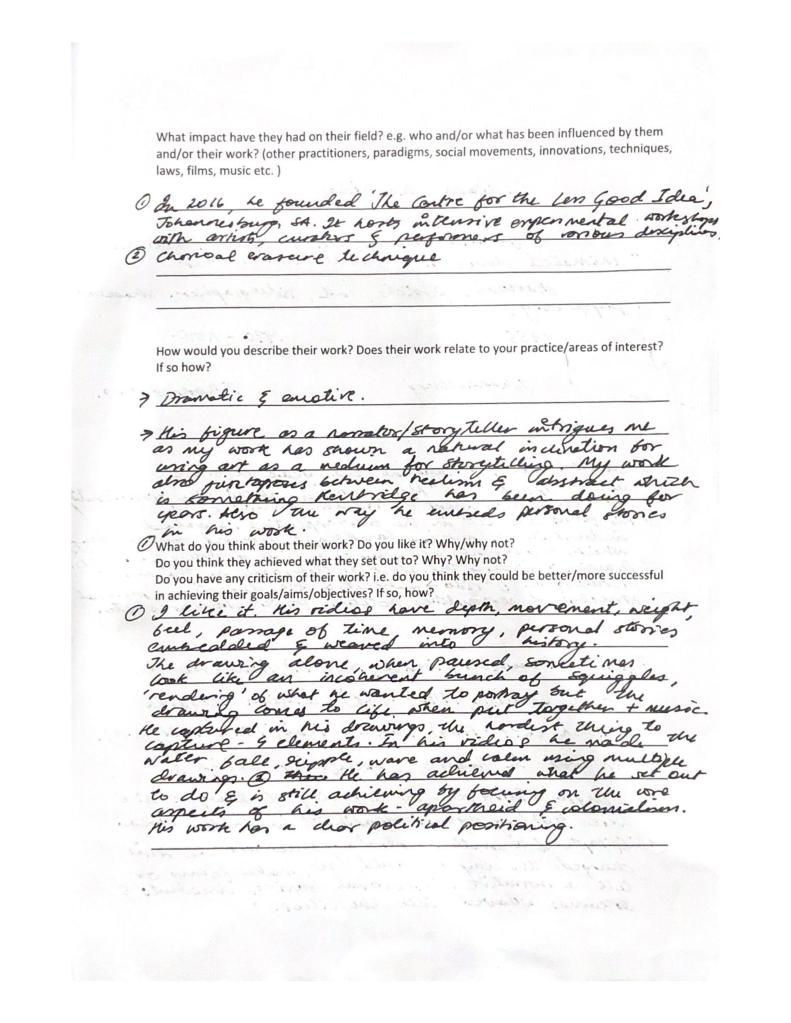 What impact have they had on their field? e.g. who and/or what has been influenced by them
and/or their work? (other practitioners, paradigms, social movements, innovations, techniques,
laws, films, music etc. )
① In 2016, he founded 'The Centre for the Less Good Idea',
Johannesburg, SA. It hosts intensive experimental workshops
with artists, curators & performers of various disciplines.
② Charcoal erasure technique
How would you describe their work? Does their work relate to your practice/areas of interest?
If so how?
→ Dramatic & emotive.
→ His figure as a narrator/storyteller intrigues me
as my work has shown a natural inclination for
using art as a medium for storytelling. My work
also juxtaposes between realism & abstract which
is something Kentridge has been doing for
years. Also the way he embeds personal stories
in his work.
① What do you think about their work? Do you like it? Why/why not?
Do you think they achieved what they set out to? Why? Why not?
Do you have any criticism of their work? i.e. do you think they could be better/more successful
in achieving their goals/aims/objectives? If so, how?
① I like it. His videos have depth, movement, weight,
feel, passage of time, memory, personal stories
embedded & weaved into history.
The drawing alone, when paused, sometimes
look like an incoherent bunch of squiggles,
'rendering' of what he wanted to portray but the
drawing comes to life when put together + music.
He captured in his drawings, the hardest thing to
capture - 4 elements. In his videos he made the
water fall, ripple, wave and calm using multiple
drawings. ② He has achieved what he set out
to do & is still achieving by focusing on the core
aspects of his work - apartheid & colonialism.
His work has a clear political positioning.